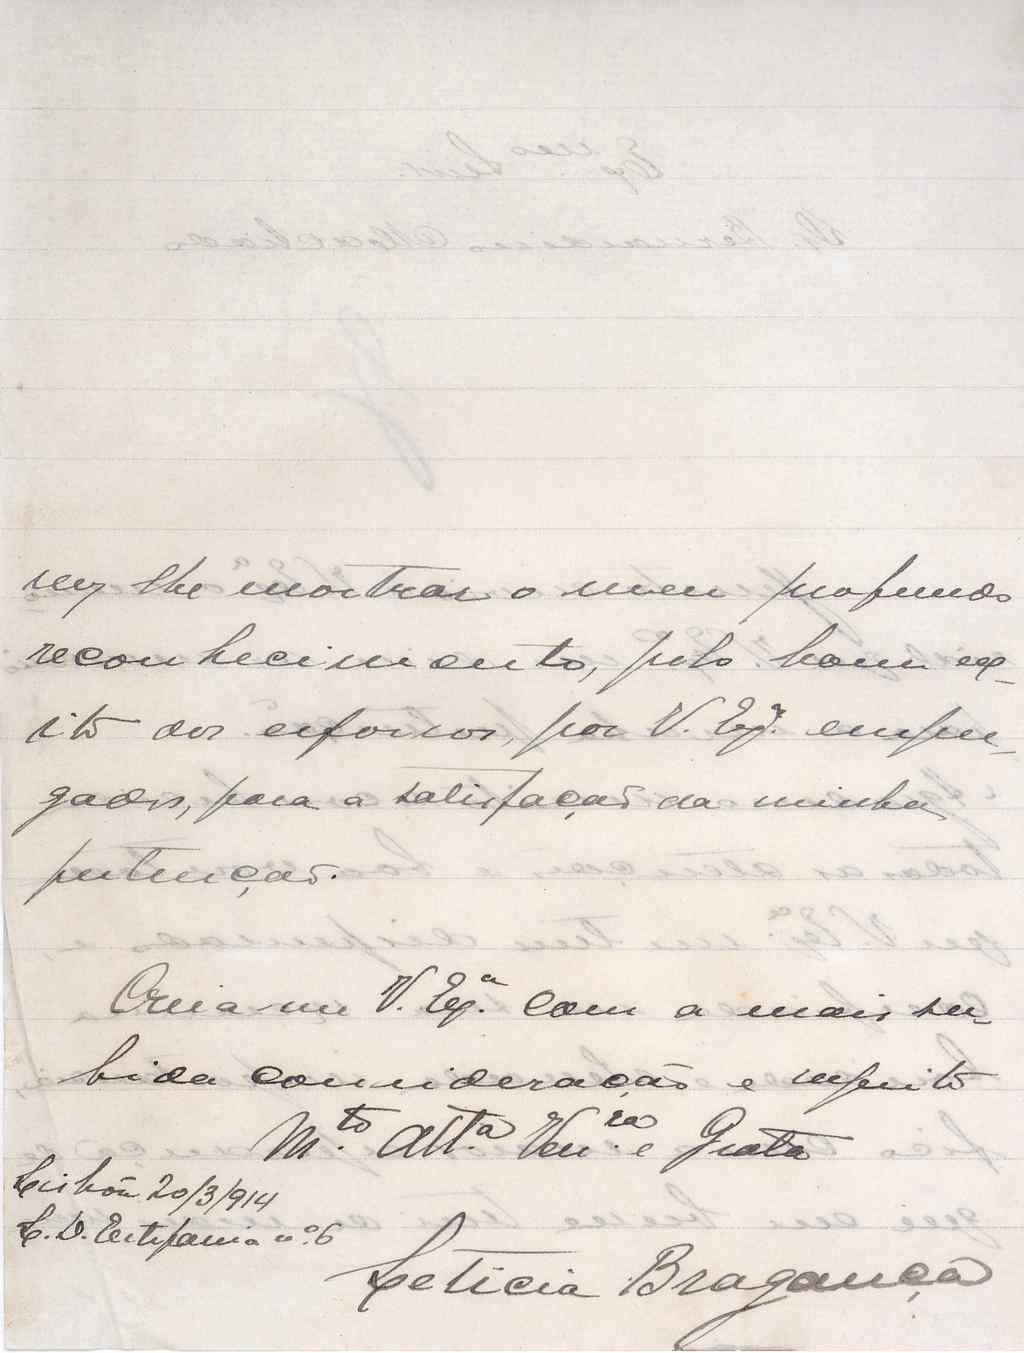 vez lhe mostrar o meu profundo
reconhecimento, pelo bom ex-
ito dos esforsos, por V. Exª. empre-
gados, para a satisfação da minha
pretenção.
Creia-me V. Exª. com a mais su-
bida consideração e respeito
M.to Att.a Ven.ra e Grata
Lisboa 20/3/914
L. D. Estefania nº 6
Leticia Bragança